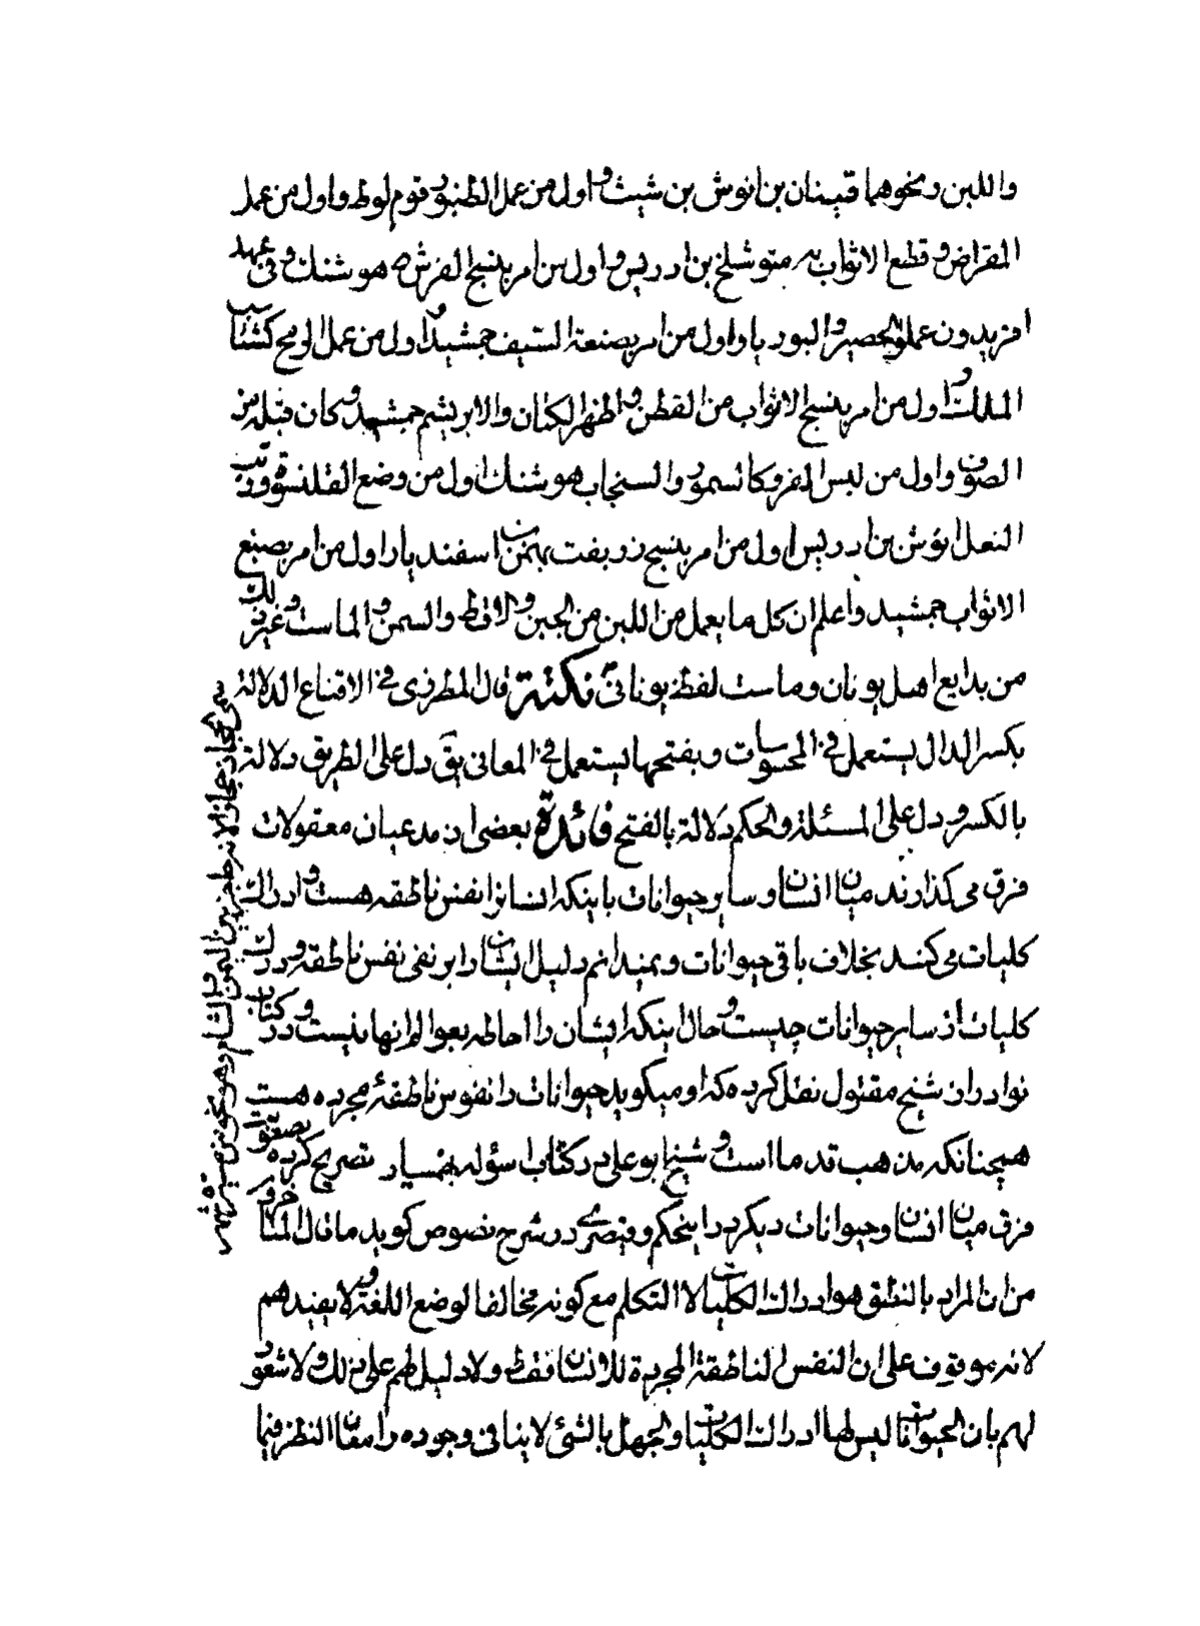 واللبن ونحوهما قينان بن انوش بن شيث و اول من عمل الطنبور قوم لوط واول من عمل
المقراض و قطع الاثواب به متوشلخ بن ادريس و اول من امر بنسج الفرش هوشنك و فى عهد
افريدون عمل الحصير و البوريا واول من امر بصنعة السيف جمشيد و اول من عمل الرمح كشتاسب
الملك و اول من امر بنسج الاثواب من القطن و اظهر الكتان والابريشم جمشيد و كان قبله من
الصوف و اول من لبس الفرو كالسمور والسنجاب هوشنك اول من وضع القلنسوة و رتب
النعل انوش بن ادريس اول من امر بنسج زربفت بهمن بن اسفنديار اول من امر بصبغ
الاثواب جمشيد واعلم ان كل ما يعمل من اللبن من الجبن و الاقط والسمن و الماست و غير ذلك
من بدايع اهل يونان وماست لفظ يونانى نكتة قال المطرزى فى الاقناع الدلالة
بكسر الدال يستعمل فى المحسوسات وبفتحها يستعمل فى المعانى يق دل على الطريق دلالة
بالكسر و دل على المسئلة والحكم دلالة بالفتح فائدة بعضى از مدعيان معقولات
فرق مى كذارند ميان انسان و ساير حيوانات باينكه انسانرا نفس ناطقه هست و ادراك
كليات مى كند بخلاف باقى حيوانات و نميدانم دليل ايشان را بر نفى نفس ناطقه و درك
كليات از ساير حيوانات چيست و حال اينكه ايشان را احاطه بعوالم انها نيست و در كتاب
نوادر از شيخ مقتول نقل كرده كه او ميكويد حيوانات را نفوس ناطقۀ مجرده هست
همچنانكه مذهب قدما است و شيخ ابو على در كتاب اسؤله بهمنيار تصريح كرده بصعوبة
فرق ميان انسان و حيوانات ديكر در اينحكم و قيصرى در شرح فصوص كويد ما قال المتاخرون
من ان المراد بالنطق هو ادراك الكليات لا التكلم مع كونه مخالفا لوضع اللغة و لا يفيدهم
لانه موقوف على ان النفس الناطقة المجردة للانسان فقط ولا دليل لهم على ذلك و لا شعور
لهم بان الحيوانات ليس لها ادراك الكليات والجهل بالشئ لا ينافى وجوده و امعان النظر فيما